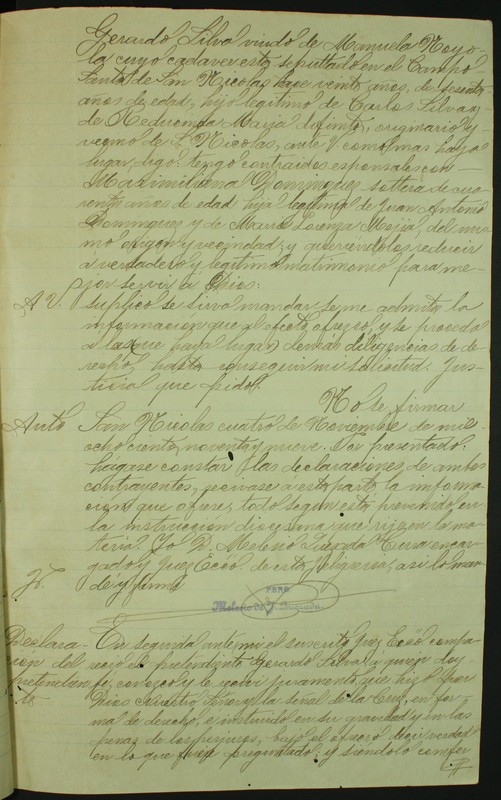 Gerardo Silva viudo de Manuela Noyo-
la cuyo cadaver esta sepultado en el Campo
Santo de San Nicolas hace veinte años, de sesenta
años de edad, hijo legitimo de Carlos Silva y
de Reducinda Mejia difunto, originario y
vecino de S. Nicolas, ante V. como mas haya
lugar, digo: tengo contraidos esponsales con
Maximiliana Dominguez soltera de cua-
renta años de edad hija legitima de Juan Antonio
Dominguez y de Maria Lorenza Mejia, del mis-
mo origen y vecindad; y queriendolos reducir
a verdadero y legitimo matrimonio para me-
jor servir á Dios:
A V. suplico se sirva mandar se me admita la
informacion que al efecto ofrezco, y se proceda
a las que haya lugar demas diligencias de de-
recho, hasta conseguir mi solicitud. Jus-
ticia que pido.
No se firmar
Auto San Nicolas cuatro de Noviembre de mil
ochocientos noventa y nueve. Por presentado:
hagase constar las declaraciones de ambos
contrayentes, recivase a esta parte la informa-
cion que ofrece, todo segun esta prevenido en
la instruccion diocesana que rije en la ma-
teria. Yo D. Melesio Quezada Cura encar-
gado y Juez Eccó. de esta feligresia, asi lo man-
dé y firmé
PBRO.
Melesio de J. Quezada
Declara- En seguida ante mi el suscrito Juez Eccó compa-
cion del recio el pretendiente Gerardo Silva a quien doy
pretendien- fé, conozco y le recivi juramento que hizo por
te Dios Nuestro Señor y la señal de la Cruz, en for-
mal de derecho, e instruido en su gravedad y en las
penas de los perjuros, bajo el ofrecio decir verdad
en lo que fuere preguntado; y siendolo confor